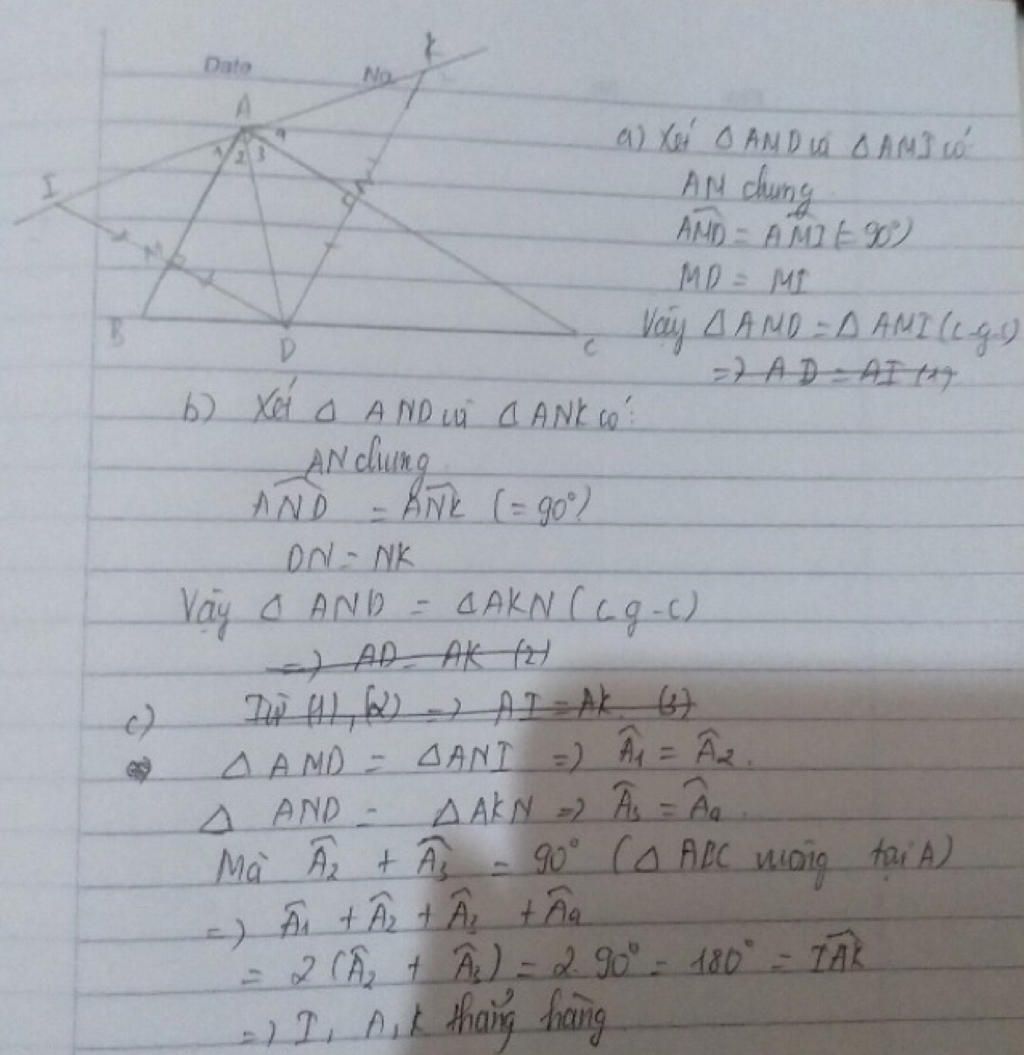 Date No
K
A
1 2 3 4
I
N
M
B D C
a) Xét △ AMD và △ AMI có
AM chung
AMD̂ = AM̂I (= 90°)
MD = MI
Vậy △ AMD = △ AMI (c g-c)
=> AD = AI (1)
b) Xét △ AND và △ ANK có:
AN chung
AN̂D = AN̂K (= 90°)
DN = NK
Vậy △ AND = △AKN (c g-c)
=> AD = AK (2)
c) Từ (1), (2) => AI = AK (3)
△ AMD = △ANI => Â1 = Â2.
△ AND = △AKN => Â3 = Â4.
Mà Â2 + Â3 = 90° (△ ABC vuông tại A)
=> Â1 + Â2 + Â3 + Â4
= 2 (Â2 + Â3) = 2.90° = 180° = IÂK
=> I, A, K thẳng hàng